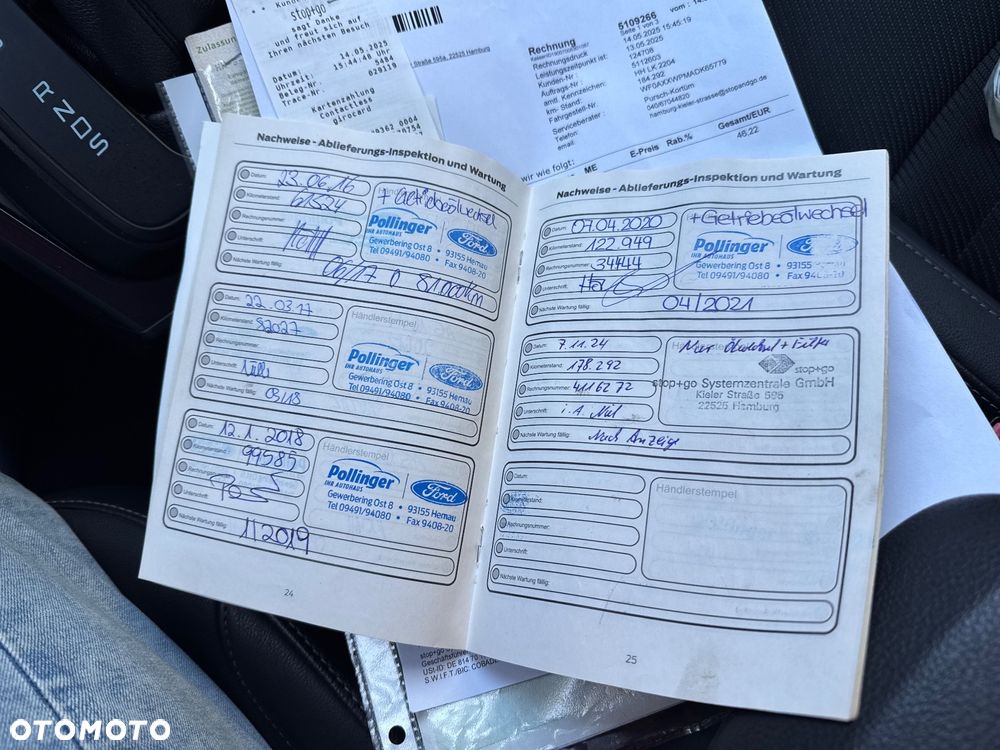 stop+go
sagt Danke
und freut sich auf
Ihren nächsten Besuch
Datum: 14.05.2025
Uhrzeit: 15:44:48 Uhr
Beleg-Nr. 5484
Trace-Nr. 029119
Kartenzahlung
Contactless
girocard
Zulassung
Straße 595a, 22525 Hamburg
Rechnung
5109266
Seite 1 von 3
Rechnungsdruck 14.05.2025 15:45:19
Leistungszeitpunkt ist: 13.05.2025
Kunden-Nr.: 124708
Auftrags-Nr.: 5112603
amtl. Kennzeichen: HH LK 2204
km- Stand: 184.292
Fahrgestell-Nr.: WF0AXXWPMADK65779
Serviceberater: Pursch-Kortüm
Telefon: 040/67044820
email: hamburg-kieler-strasse@stopandgo.de
wir wie folgt:
ME E-Preis Rab.% Gesamt/EUR
46,22
R N D S
Nachweise - Ablieferungs-Inspektion und Wartung
Datum: 23.06.16
+ Getriebeölwechsel
Kilometerstand: 61524
Rechnungsnummer:
Unterschrift:
Nächste Wartung fällig: 06/17 o 82000km
Pollinger
IHR AUTOHAUS
Ford
Gewerbering Ost 8 • 93155 Hemau
Tel 09491/94080 • Fax 9408-20
Datum: 22.03.17
Händlerstempel
Kilometerstand: 82027
Rechnungsnummer:
Unterschrift:
Nächste Wartung fällig: 03/18
Pollinger
IHR AUTOHAUS
Ford
Gewerbering Ost 8 • 93155 Hemau
Tel 09491/94080 • Fax 9408-20
Datum: 12.1.2018
Händlerstempel
Kilometerstand: 99585
Rechnungsnummer:
Unterschrift:
Nächste Wartung fällig: 1/2019
Pollinger
IHR AUTOHAUS
Ford
Gewerbering Ost 8 • 93155 Hemau
Tel 09491/94080 • Fax 9408-20
24
Nachweise - Ablieferungs-Inspektion und Wartung
Datum: 07.04.2020
+Getriebeölwechsel
Kilometerstand: 122.949
Rechnungsnummer: 34444
Unterschrift:
Nächste Wartung fällig: 04/2021
Pollinger
IHR AUTOHAUS
Ford
Gewerbering Ost 8 • 93155
Tel 09491/94080 • Fax 9408-20
Datum: 7.11.24
Nur Ölwechsel + Filter
Kilometerstand: 178.292
Rechnungsnummer: 4116272
Unterschrift: i.A
Nächste Wartung fällig: Nach Anzeige
stop+go
stop+go Systemzentrale GmbH
Kieler Straße 595
22525 Hamburg
Datum:
Händlerstempel
Kilometerstand:
Rechnungsnummer:
Unterschrift:
Nächste Wartung fällig:
25
stop+go
Geschäftsführer
USt-ID: DE 814
S.W.I.F.T./BIC: COBADE
OTOMOTO